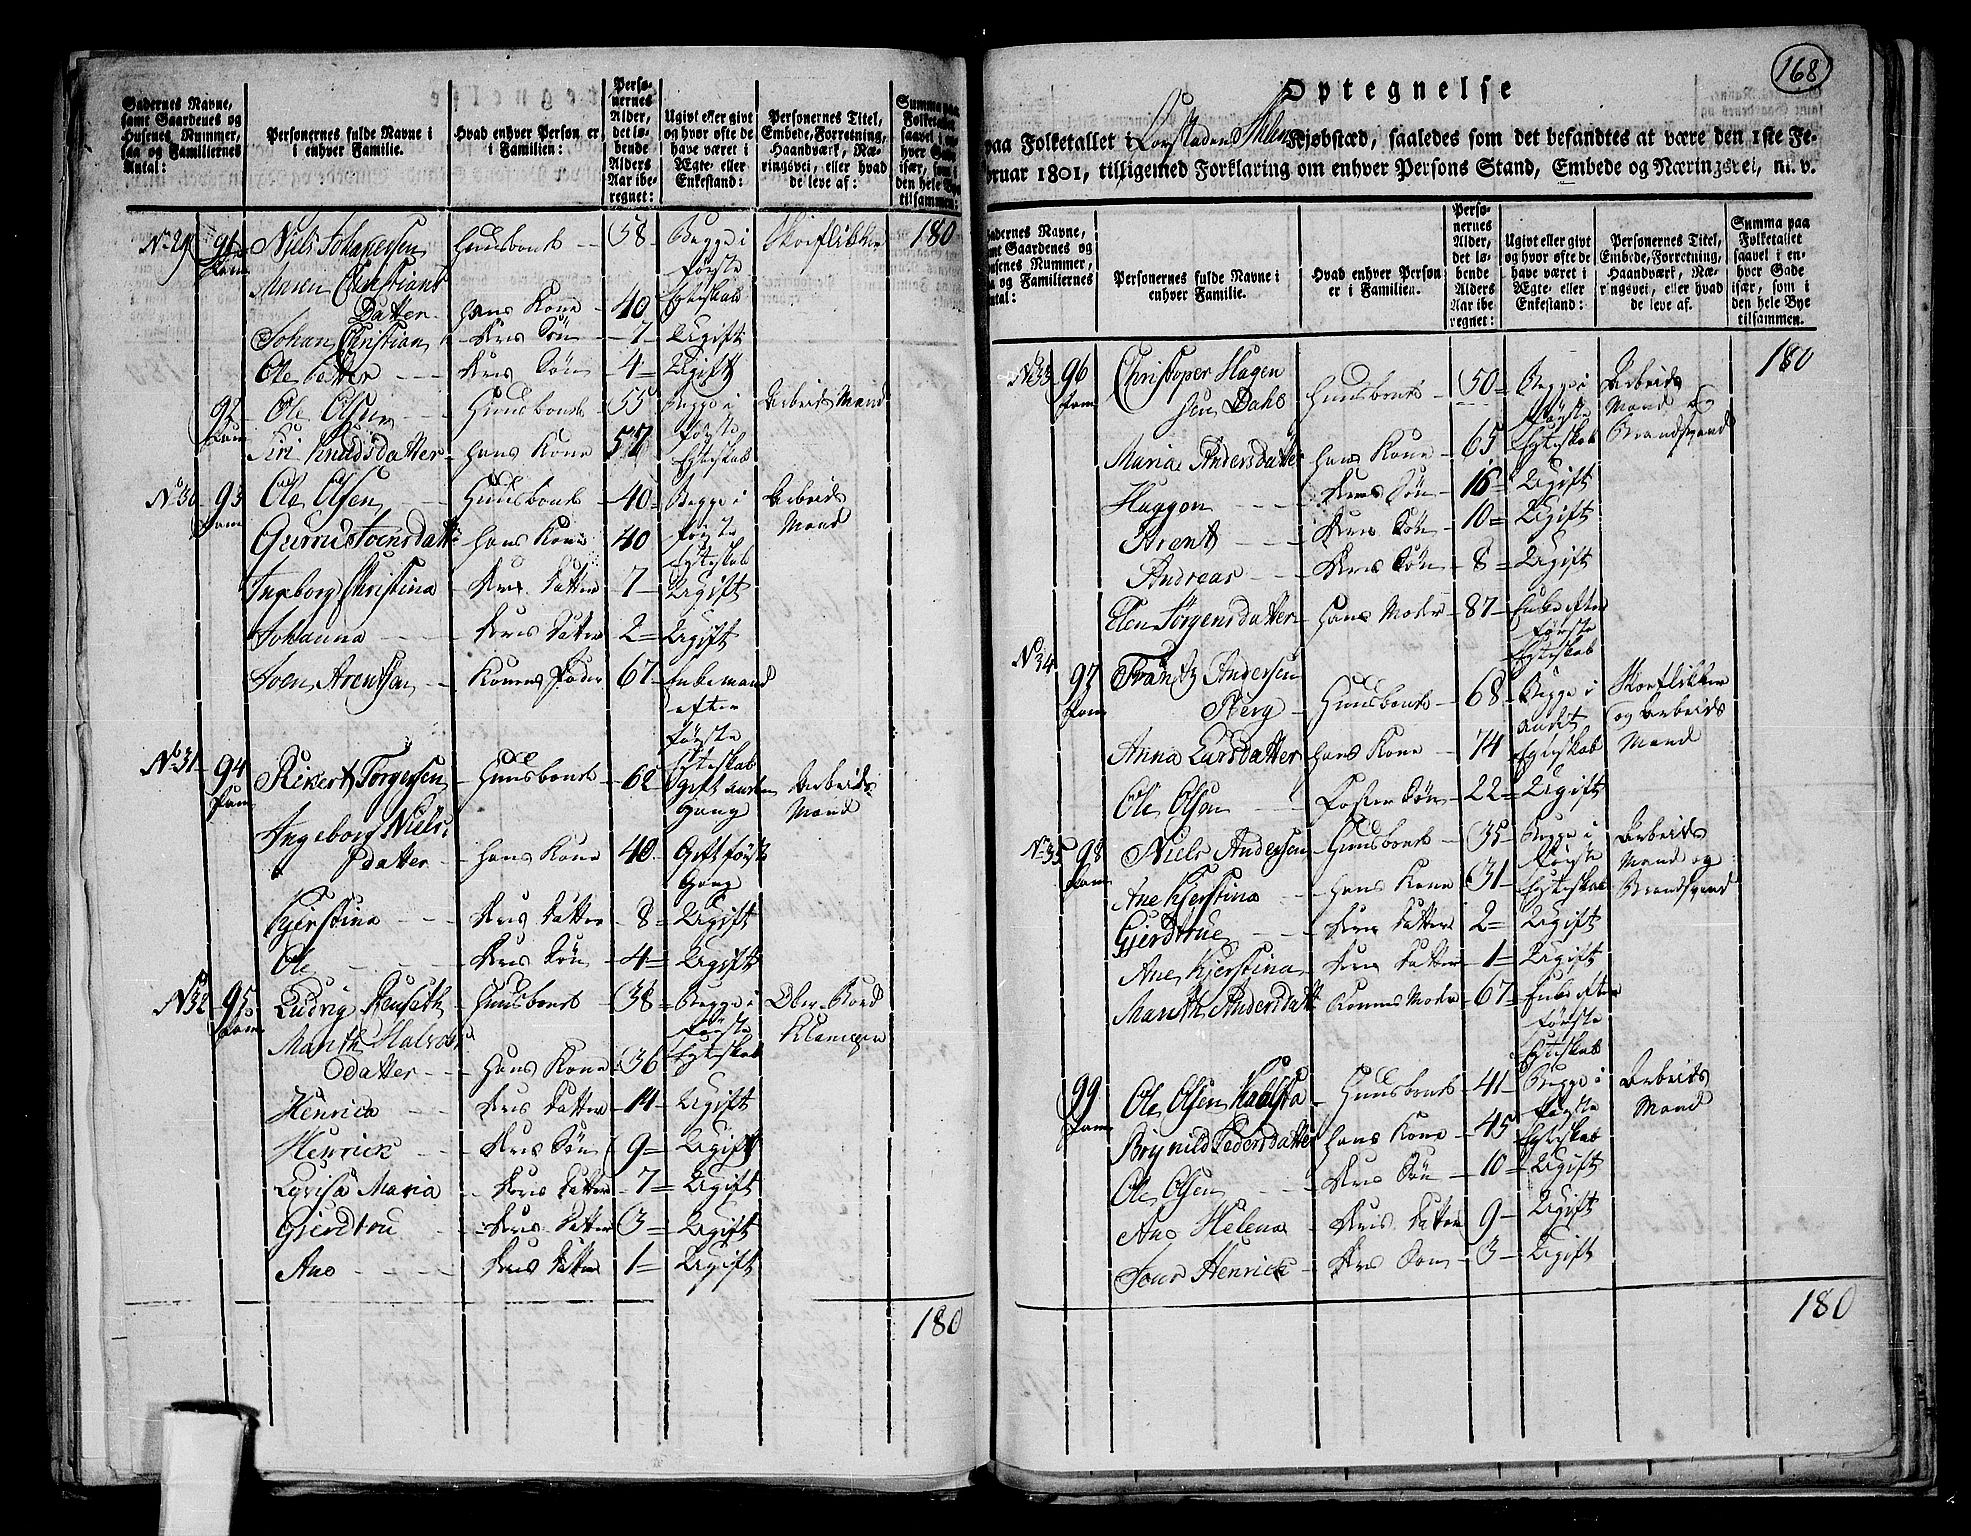 Gadernes Navne,
samt Gaardenes og
Husenes Nummer,
saa og Familiernes
Antal:
Personernes fulde Navne i
enhver Familie.
Hvad enhver Person er
i Familien:
Perso-
nernes
Alder,
det lø-
bende
Alders
Aar ibe-
regnet:
Ugivt eller givt
og hvor ofte de
have været i
Ægte- eller
Enkestand:
Personernes Titel,
Embede, Forretning,
Haandværk, Næ-
ringsvei, eller hvad
de leve af:
Summa paa
Folketallet
saavel i en-
hver Gade
især, som i
den hele Bye
tilsammen:
No 29 91 Fam Niels Johannesen Huusbonde 38 Begge i Skoeflikker 180
Maren Christians første
Datter hans Kone 40 Egteskab
Johan Christian deres Søn 7 Ugift
Ole deres Søn 4 Ugift
92 Fam Ole Olsen Huusbonde 55 Begge i Arbeids Mand
Siri Knudsdatter hans Kone 57 første Egteskab
No 30 93 Fam Ole Olsen Huusbonde 40 Begge i Arbeids
hans Kone 40 første Mand
Egteskab
Ingeborg Christina deres Datter 7 Ugift
Johanna deres Datter 2 Ugift
Soen Arentsen Konens Fader 67 Enkemand
efter
første
Egteskab
No 31 94 Fam Rikert Torgersen Huusbonde 62 Gift anden Arbeids
Gang Mand
Ingeborg Niels
datter hans Kone 40 Gift første
Gang
Kjerstina deres Datter 8 Ugift
Ole deres Søn 4 Ugift
No 32 95 Fam Ludvig Huusbonde 38 Begge i
Marith Halvors første
datter hans Kone 36 Egteskab
Henrica deres Datter 14 Ugift
Henrick deres Søn 9 Ugift
Lovisa Maria deres Datter 7 Ugift
Gierdrou deres Datter 3 Ugift
Ane deres Datter 1 Ugift
180
168
Optegnelse
paa Folketallet i Kjøbstæd, saaledes som det befandtes at være den 1ste Fe-
bruar 1801, tilligemed Forklaring om enhver Persons Stand, Embede og Næringsvei, m. v.
Gadernes Navne,
samt Gaardenes og
Husenes Nummer,
saa og Familiernes
Antal:
Personernes fulde Navne i
enhver Familie.
Hvad enhver Person
er i Familien.
Perso-
nernes
Alder,
det lø-
bende
Alders
Aar ibe-
regnet:
Ugivt eller givt
og hvor ofte de
have været i
Ægte- eller
Enkestand:
Personernes Titel,
Embede, Forretning,
Haandværk, Næ-
ringsvei, eller hvad
de leve af.
Summa paa
Folketallet
saavel i en-
hver Gade
især, som i
den hele Bye
tilsammen.
No 33 96 Fam Christoper Hagen Huusbonde 50 Begge i Arbeids 180
sen Dahs første Mand og
Maria Andersdatter hans Kone 65 Egteskab Brandsvend
Haagen deres Søn 16 Ugift
Arent deres Søn 10 Ugift
Andreas deres Søn 8 Ugift
Elen Jørgensdatter hans Moder 87 Enke efter
første
Egteskab
No 34 97 Fam Frantz Andersen Skoeflikker
Berg Huusbonde 68 Begge i og Arbeids
andet Mand
Anna Larsdatter hans Kone 74 Egteskab
Ole Olsen Foster Søn 22 Ugift
No 35 98 Fam Niels Andersen Huusbonde 35 Begge i Arbeids
første Mand og
Ane Kjerstina hans Kone 31 Egteskab Brandsvend
Gjerdrue deres Datter 2 Ugift
Ane Kjerstina deres Datter 1 Ugift
Marith Andersdatt Konens Moder 67 Enke efter
første
Egteskab
99 Fam Ole Olsen Huusbonde 41 Begge i Arbeids
første Mand
Brynild Pedersdatter hans Kone 45 Egteskab
Ole Olsen deres Søn 10 Ugift
Ane Helena deres Datter 9 Ugift
Henrick deres Søn 3 Ugift
180